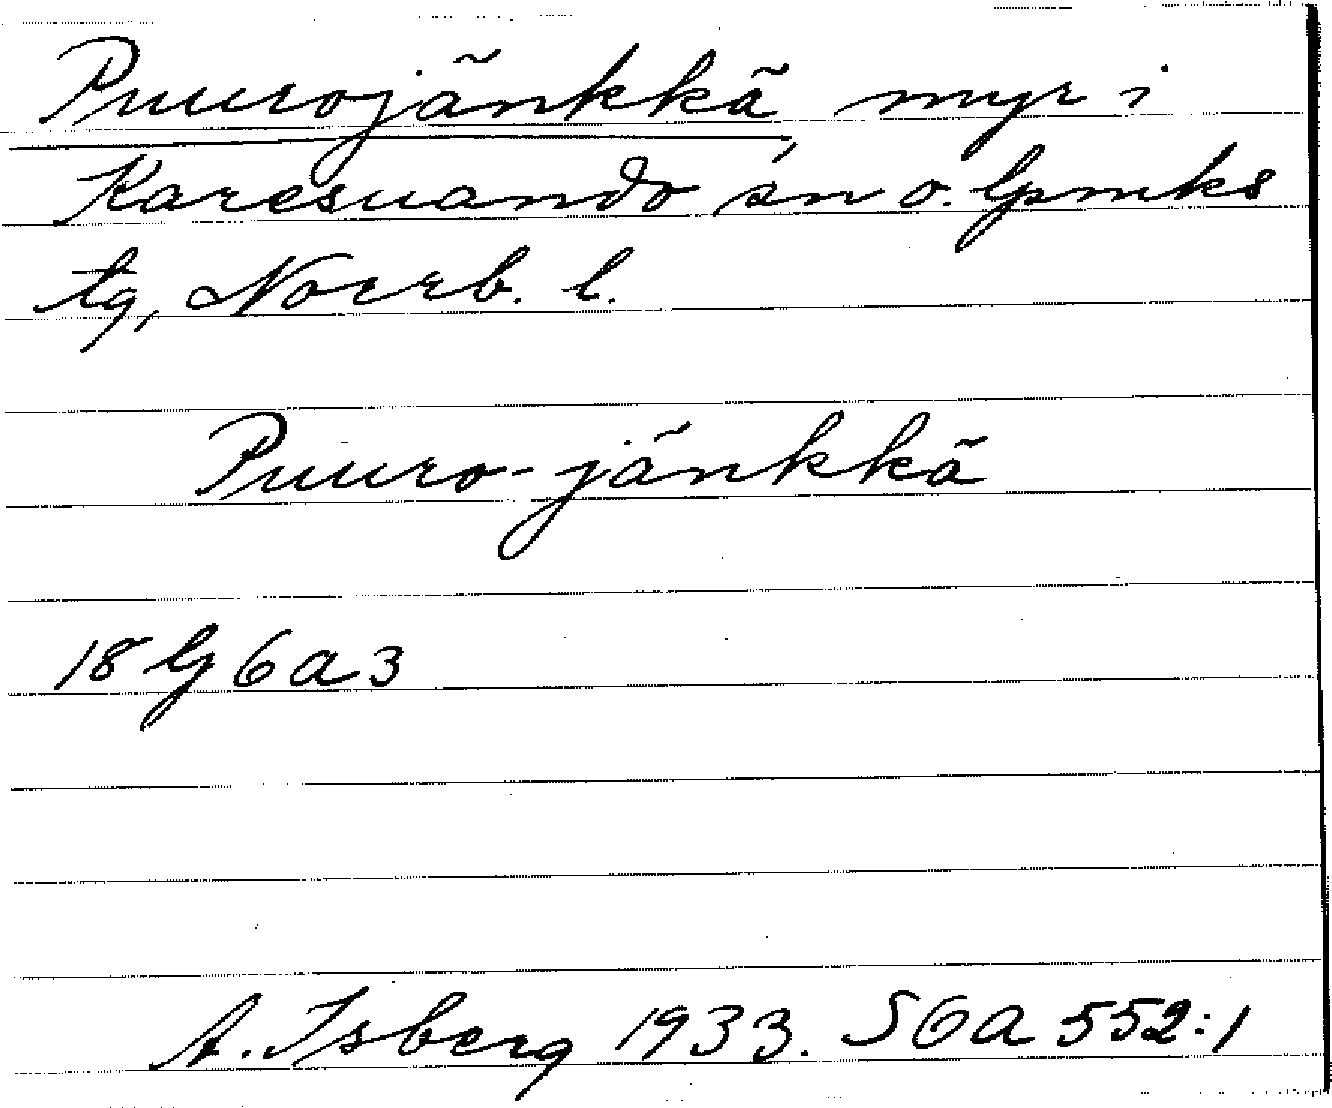 Puurojänkkä, myr i
Karesuando sn o. lpmks
tg, Norrb. l.
Puuro-jänkkä
18 G 6 a 3
A. Isberg 1933. SOA 552:1